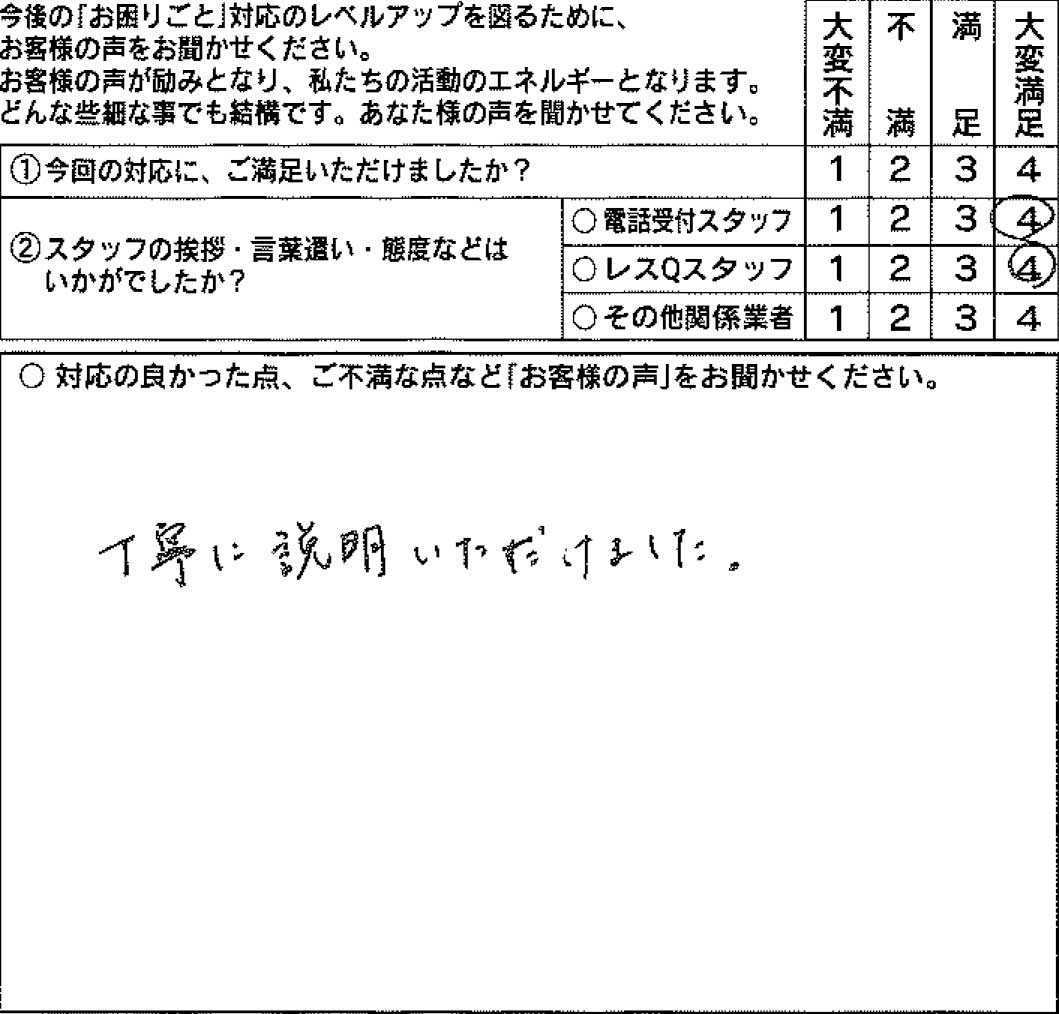 今後の「お困りごと」対応のレベルアップを図るために、
お客様の声をお聞かせください。
お客様の声が励みとなり、私たちの活動のエネルギーとなります。
どんな些細な事でも結構です。あなた様の声を聞かせてください。
大変不満 不満 満足 大変満足
①今回の対応に、ご満足いただけましたか？ 1 2 3 4
②スタッフの挨拶・言葉遣い・態度などは
いかがでしたか？
○電話受付スタッフ 1 2 3 4
○レスQスタッフ 1 2 3 4
○その他関係業者 1 2 3 4
○ 対応の良かった点、ご不満な点など「お客様の声」をお聞かせください。
丁寧に説明いただけました。